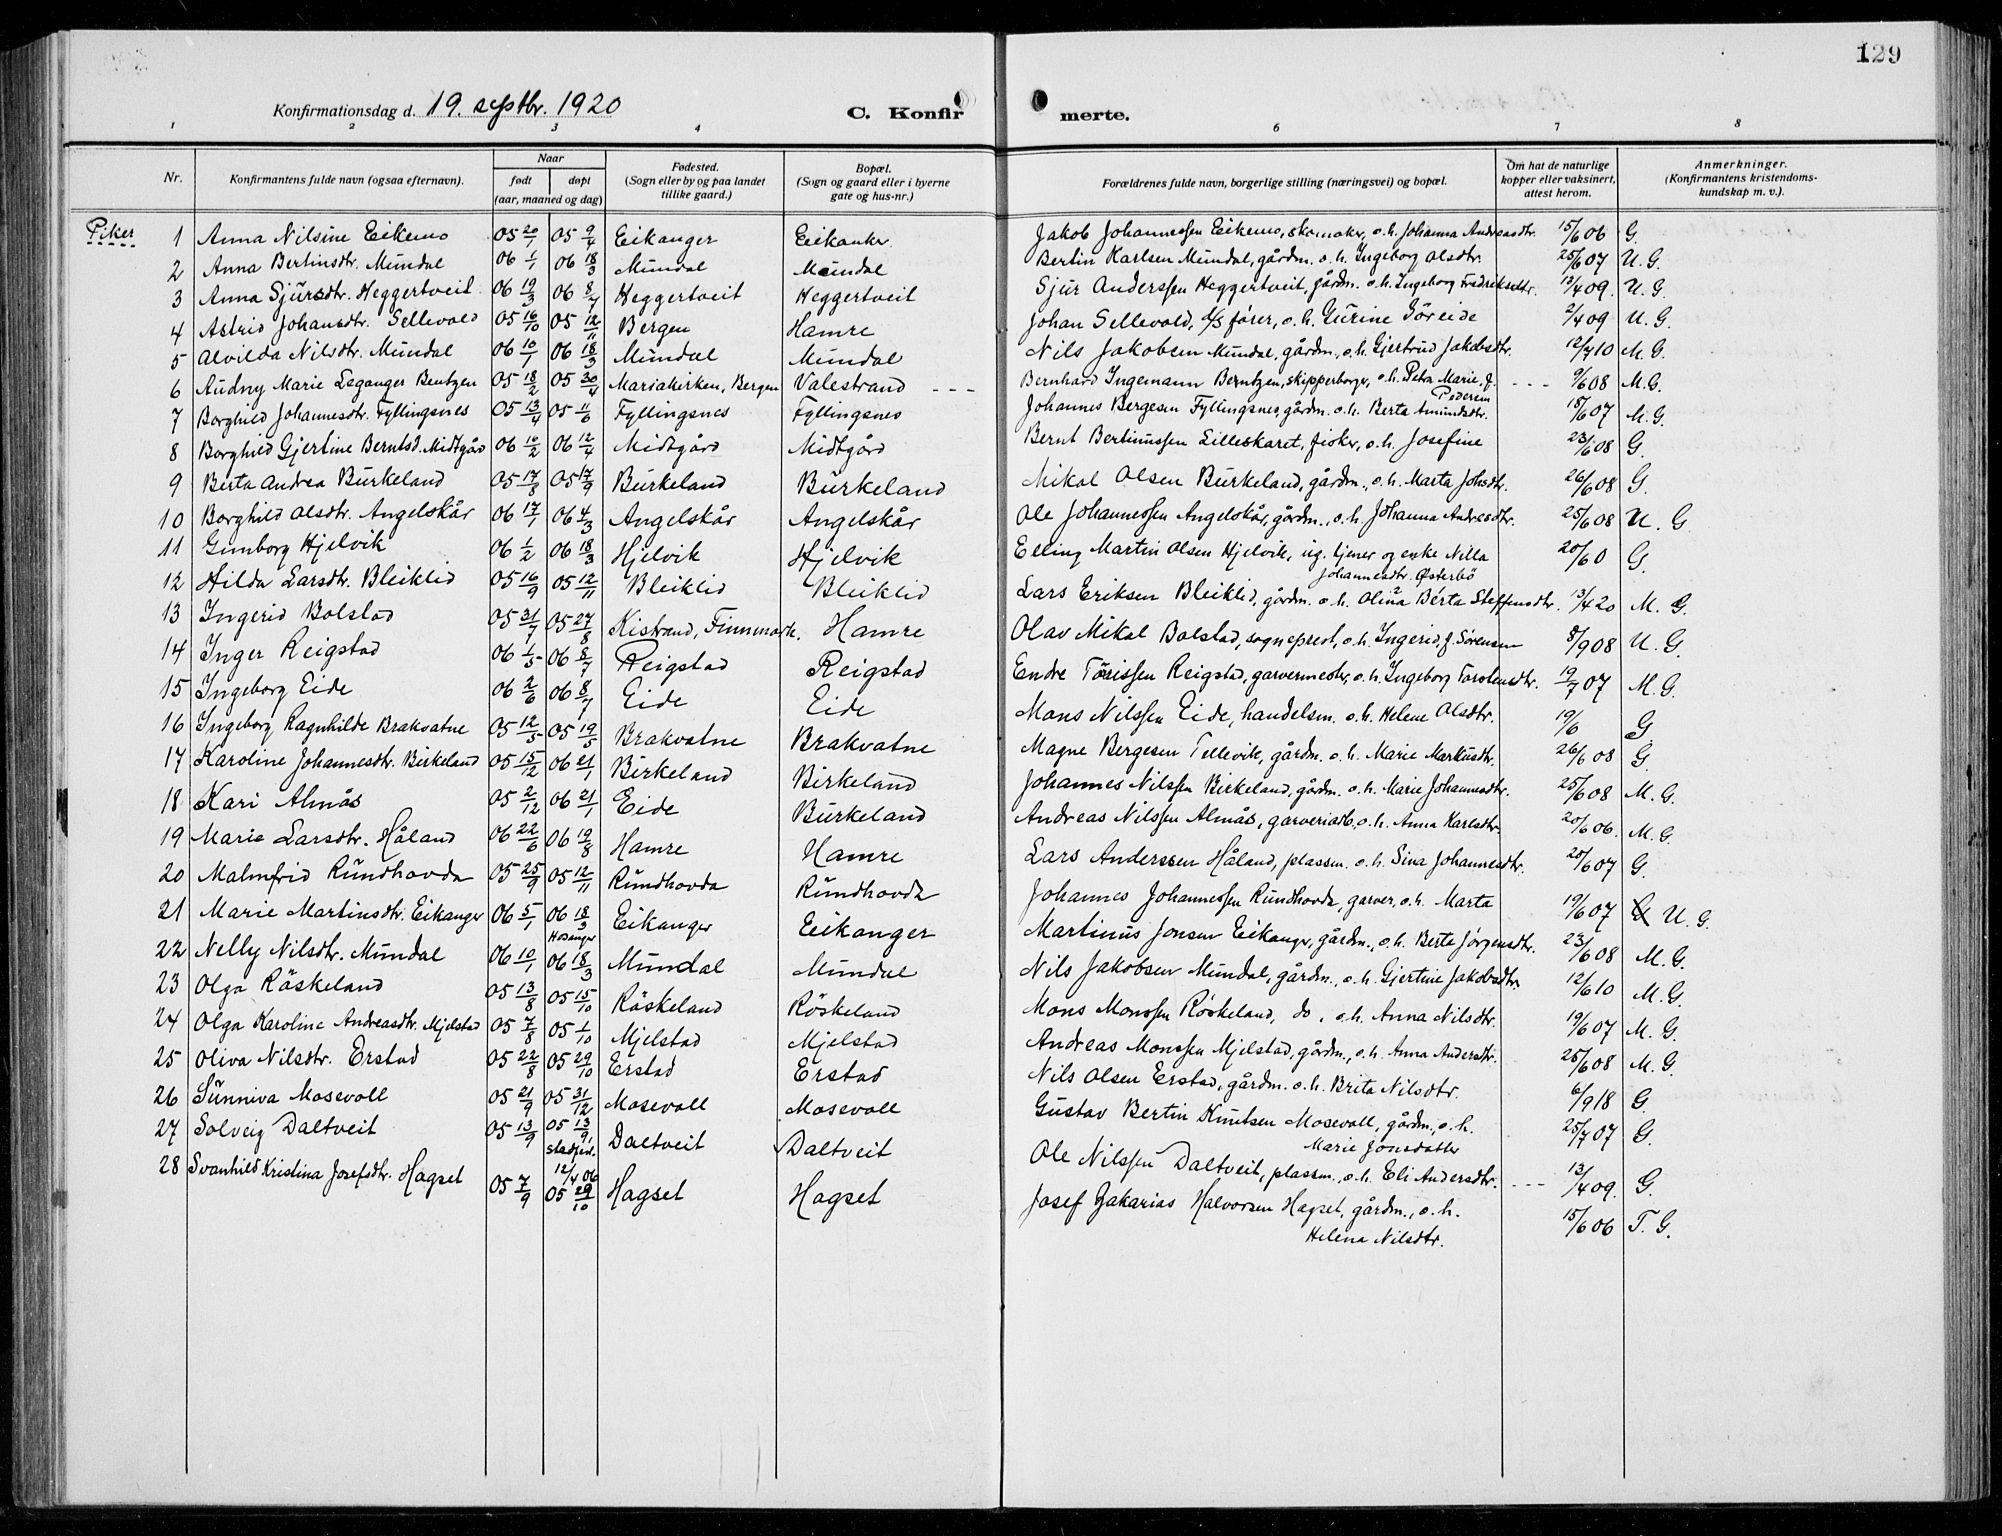 129
Konfirmationsdag d. 19. septbr. 1920 C. Konfirmerte.
1 2 3 4 6 7 8
Nr. | Konfirmantens fulde navn (ogsaa efternavn). | Naar født døpt (aar, maaned og dag) | Fødested. (Sogn eller by og paa landet tillike gaard.) | Bopæl. (Sogn og gaard eller i byerne gate og hus-nr.) | Forældrenes fulde navn, borgerlige stilling (næringsvei) og bopæl. | Om hat de naturlige kopper eller vaksinert, attest herom. | Anmerkninger. (Konfirmantens kristendomskundskap m. v.).
Piker
1 Anna Nilsine Eikemo 05 20/1 05 9/4 Eikanger Eikanker Jakob Johannessen Eikemo, skomaker, o.h. Johanna Andreasdtr. 15/6 06 G.
2 Anna Bertinsdtr. Mundal 06 1/1 06 18/3 Mundal Mundal Bertin Karlsen Mundal, gårdm. o.h. Ingeborg Olsdtr. 25/6 07 U.G.
3 Anna Sjursdtr. Heggertveit 06 19/3 06 8/7 Heggertveit Heggertveit Sjur Anderssen Heggertveit, gårdm. o.h. Ingeborg Fredriksdtr. 13/4 09. U.G.
4 Astrid Johansdtr. Sellevold 05 16/10 05 12/11 Bergen Hamre Johan Sellevold, d/s fører, o.h. Gurine Søreide 2/4 09 U.G.
5 Alvilda Nilsdtr. Mundal 06 10/1 06 18/3 Mundal Mundal Nils Jakobsen Mundal, gårdm., o.h. Gjertrud Jakobsdtr. 12/7 10 M.G.
6 Audny Marie Leganger Bentzen 05 18/2 05 30/4 Mariakirken, Bergen Valestrand - - - Bernhard Ingemann Berntzen, skipperborger, o.h. Petra Marie, f. Pedersen - - - 9/6 08 M.G.
7 Borghild Johannesdtr. Fyllingsnes 05 13/4 05 11/6 Fyllingsnes Fyllingsnes Johannes Bergesen Fyllingsnes, gårdm. o.h. Berta Amundsdtr. 18/6 07 M.G.
8 Borghild Gjertine Berntsd. Midtgård 06 10/2 06 12/4 Midtgård Midtgård Bernt Bertinussen Lilleskaret, fisker, o.h. Josefine 23/6 08 G.
9 Berta Andrea Burkeland 05 17/8 05 17/9 Burkeland Burkeland Mikal Olsen Burkeland, gårdm., o.h. Marta Johsdtr. 26/6 08 G.
10 Borghild Olsdtr. Angelskår 06 17/1 06 4/3 Angelskår Angelskår Ole Johannessen Angelskår, gårdm., o.h. Johanna Andresdtr. 25/6 08 U.G.
11 Gunborg Hjelvik 06 1/2 06 18/3 Hjelvik Hjelvik Elling Martin Olsen Hjelvik, ug. tjener og enke Nilla Johannesdtr. Østerbö 20/6 0 G.
12 Hilda Larsdtr. Bleiklid 05 16/9 05 12/11 Bleiklid Bleiklid Lars Eriksen Bleiklid, gårdm. o.h. Olina Berta Steffensdtr. 13/4 20 M.G.
13 Ingerid Bolstad 05 31/7 05 27/8 Kistrand, Finnmark. Hamre Olav Mikal Bolstad, sogneprest, o.h. Ingerid, f. Sørensen 8/9 08 U.G.
14 Inger Reigstad 06 1/5 06 8/7 Reigstad Reigstad Endre Tørrissen Reigstad, garvermester, o.h. Ingeborg Torstensdtr. 19/7 07 M.G.
15 Ingeborg Eide 06 2/6 06 8/7 Eide Eide Mons Nilssen Eide, handelsm. o.h. Helene Olsdtr. 19/6 G
16 Ingeborg Ragnhilde Brakvatne 05 12/5 05 19/5 Brakvatne Brakvatne Magne Bergesen Tellevik, gårdm. o.h. Marie Markusdtr. 26/6 08 G.
17 Karoline Johannesdtr. Birkeland 05 15/12 06 21/1 Birkeland Birkeland Johannes Nilssen Birkeland, gårdm. o.h. Marie Johannesdtr. 25/6 08 M.G.
18 Kari Almås 05 2/12 06 21/1 Eide Burkeland Andreas Nilssen Almås, garveriarb., o.h. Anna Karlsdtr. 20/6 06. M.G.
19 Marie Larsdtr. Håland 06 22/6 06 19/8 Hamre Hamre Lars Anderssen Håland, plassm. o.h. Sina Johannesdtr. 20/6 07 G.
20 Malmfrid Rundhovda 05 25/9 05 12/11 Rundhovda Rundhovda Johannes Johannessen Rundhovda, garver, o.h. Marta 19/6 07 G U.G.
21 Marie Martinsdtr. Eikanger 06 5/1 06 18/3 Hosanger Eikanger Eikanger Martinus Jonsen Eikanger, gårdm., o.h. Berte Jørgensdtr. 23/6 08 M.G.
22 Nelly Nilsdtr. Mundal 06 10/1 06 18/3 Mundal Mundal Nils Jakobsen Mundal, gårdm., o.h. Gjertine Jakobsdtr. 12/6 10 M.G.
23 Olga Röskeland 05 13/8 05 15/10 Röskeland Röskeland Mons Monssen Röskeland, do, o.h. Anna Nilsdtr. 19/6 07 M.G.
24 Olga Karoline Andreasdtr. Mjelstad 05 7/8 05 1/10 Mjelstad Mjelstad Andreas Monssen Mjelstad, gårdm., o.h. Anna Andersdtr. 25/6 08 M.G.
25 Oliva Nilsdtr. Erstad 05 22/8 05 29/10 Erstad Erstad Nils Olsen Erstad, gårdm. o.h. Brita Nilsdtr. 6/9 18 G.
26 Sunniva Mosevoll 05 21/9 05 31/12 Mosevoll Mosevoll Gustav Bertin Knutsen Mosevoll, gårdm., o.h. Marie Jonsdatter 25/7 07 G.
27 Solveig Daltveit 05 13/9 05 13/9, stadfest. 12/4 06 Daltveit Daltveit Ole Nilssen Daltveit, plassm., o.h. Eli Andersdtr. - - - 13/4 09. G.
28 Svanhild Kristina Josefsdtr. Hagset 05 7/9 05 29/10 Hagset Hagset Josef Zakarias Halvorsen Hagset, gårdm., o.h. Helena Nilsdtr. 15/6 06 T.G.